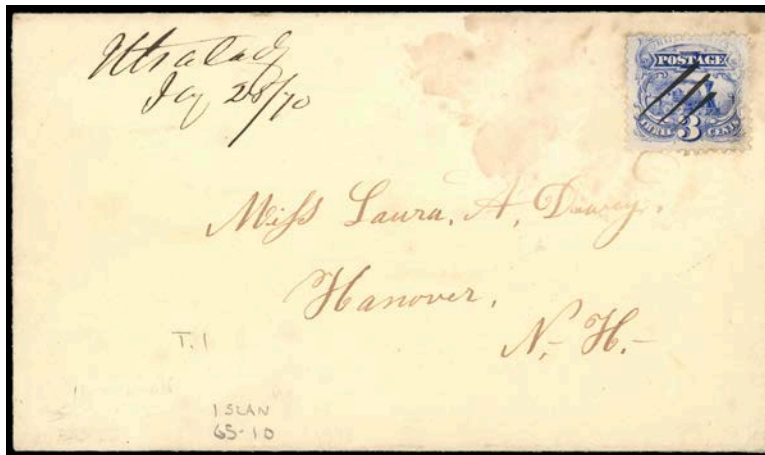 Utsalady
28/70
POSTAGE
THREE 3 CENTS
Miss Laura, A, Dewey.
Hanover,
N,- H.-
T.1
ISLAN
65-10